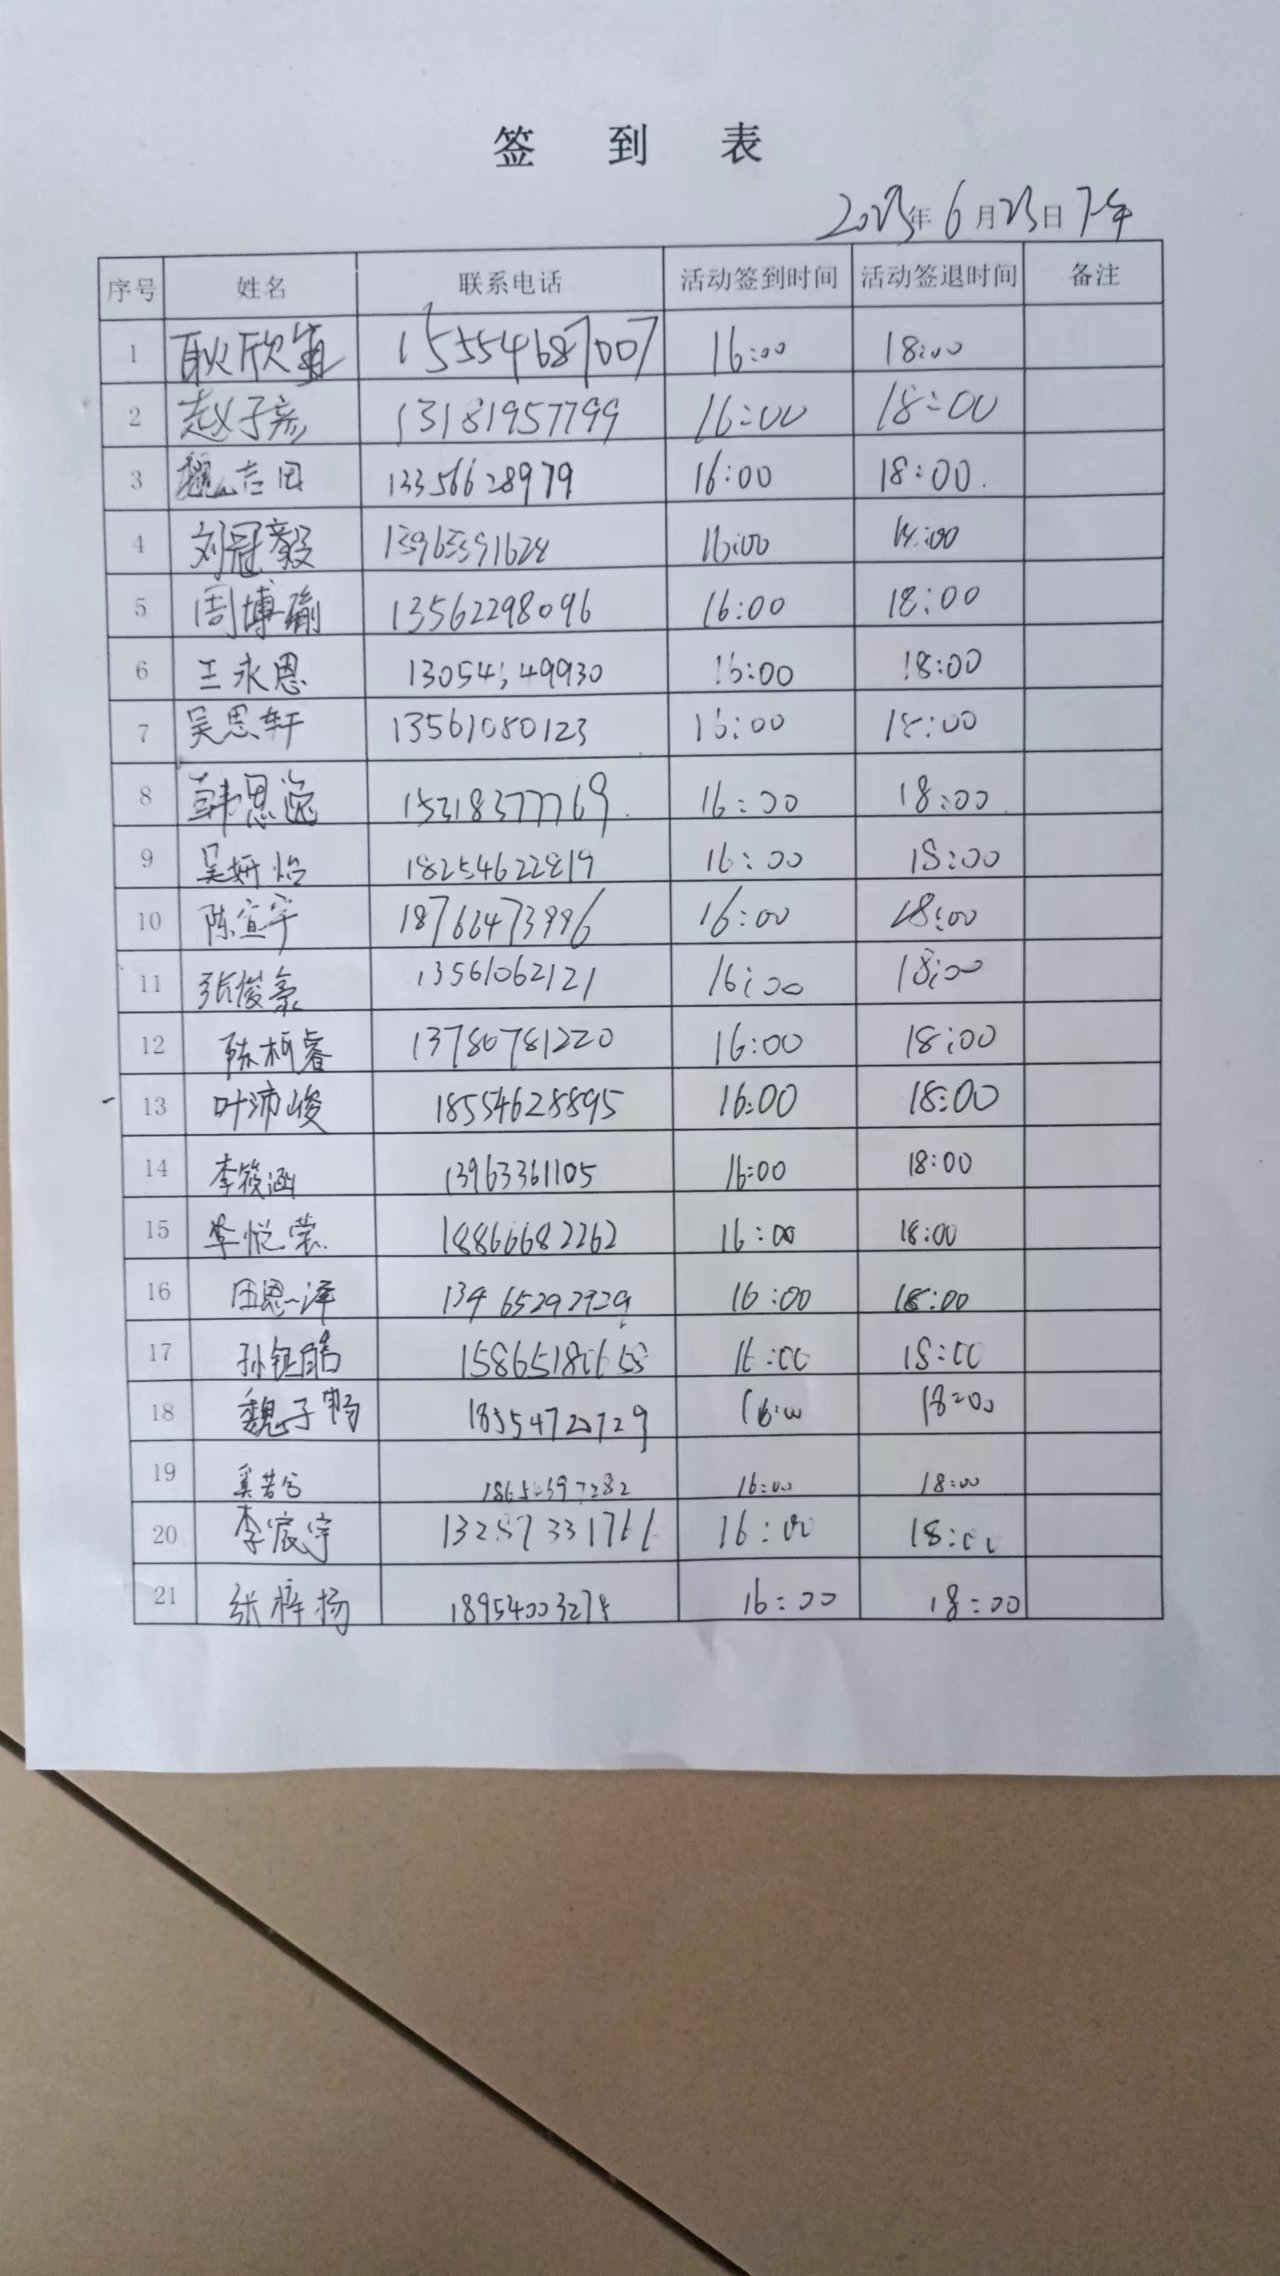 签 到 表
2023年6月23日下午
序号 姓名 联系电话 活动签到时间 活动签退时间 备注
1 耿欣笛 15554687007 16:00 18:00
2 赵子彦 13181957799 16:00 18:00
3 魏吉田 13356628979 16:00 18:00.
4 刘冠毅 16:00 18:00
5 周博瑜 13562298096 16:00 18:00
6 王永恩 16:00 18:00
7 吴恩轩 13561080123 16:00 18:00
8 韩恩逸 15318377769. 16:00 18:00
9 吴妍怡 18254622819 16:00 18:00
10 陈宣宇 16:00 18:00
11 张俊豪 13561062121 16:00 18:00
12 陈柯睿 13780781220 16:00 18:00
13 叶沛峻 18554628895 16:00 18:00
14 李筱涵 13963361105 16:00 18:00
15 李悦棠 18866682262 16:00 18:00
16 田恩泽 13465292929 16:00 18:00
17 孙钰皓 16:00 18:00
18 魏子畅 18554720729 16:00 18:00
19 奚若兮 16:00 18:00
20 李宸宇 13287331766 16:00 18:00
21 张梓杨 18954003278 16:00 18:00